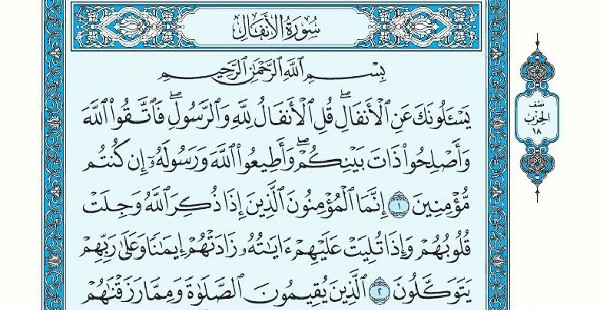 سُورَةُ الأَنفَالِ
بِسْمِ اللَّهِ الرَّحْمَٰنِ الرَّحِيمِ
يَسْـَٔلُونَكَ عَنِ ٱلْأَنفَالِ ۖ قُلِ ٱلْأَنفَالُ لِلَّهِ وَٱلرَّسُولِ ۖ فَٱتَّقُوا۟ ٱللَّهَ
وَأَصْلِحُوا۟ ذَاتَ بَيْنِكُمْ ۖ وَأَطِيعُوا۟ ٱللَّهَ وَرَسُولَهُۥٓ إِن كُنتُم
مُّؤْمِنِينَ ١ إِنَّمَا ٱلْمُؤْمِنُونَ ٱلَّذِينَ إِذَا ذُكِرَ ٱللَّهُ وَجِلَتْ
قُلُوبُهُمْ وَإِذَا تُلِيَتْ عَلَيْهِمْ ءَايَٰتُهُۥ زَادَتْهُمْ إِيمَٰنًا وَعَلَىٰ رَبِّهِمْ
يَتَوَكَّلُونَ ٢ ٱلَّذِينَ يُقِيمُونَ ٱلصَّلَوٰةَ وَمِمَّا رَزَقْنَٰهُمْ
نصف
الحزب
١٨